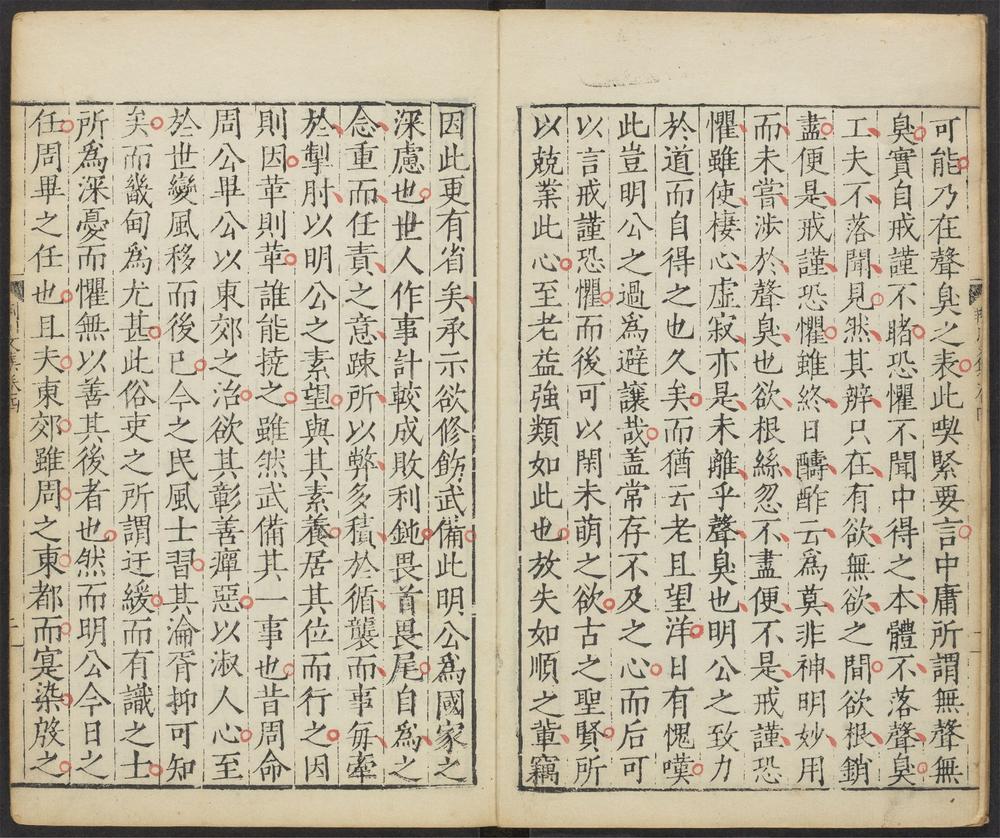 可能乃在聲臭之表此喫緊要言中庸所謂無聲無
臭實自戒謹不睹恐懼不聞中得之本體不落聲臭
工夫不落聞見然其辨只在有欲無欲之間欲根銷
盡便是戒謹恐懼雖終日酬酢云為莫非神明妙用
而未嘗涉於聲臭也欲根絲忽不盡便不是戒謹恐
懼雖使棲心虛寂亦是未離乎聲臭也明公之致力
於道而自得之也久矣而猶云老且望洋日有愧嘆
此豈明公之過為避讓哉盖常存不及之心而后可
以言戒謹恐懼而後可以閑未萌之欲古之聖賢所
以兢業此心至老益強類如此也放失如順之輩竊
因此更有省矣承示欲修飭武備此明公為國家之
深慮也世人作事計較成敗利鈍畏首畏尾自為之
念重而任責之意踈所以弊多積於循襲而事每牽
於掣肘以明公之素望與其素養居其位而行之因
則因革則革誰能撓之雖然武備其一事也昔周命
周公畢公以東郊之治欲其彰善癉惡以淑人心至
於世變風移而後已今之民風士習其淪胥抑可知
矣而畿甸為尤甚此俗吏之所謂迂緩而有識之士
所為深憂而懼無以善其後者也然而明公今日之
任周畢之任也且夫東郊雖周之東都而寔染殷之